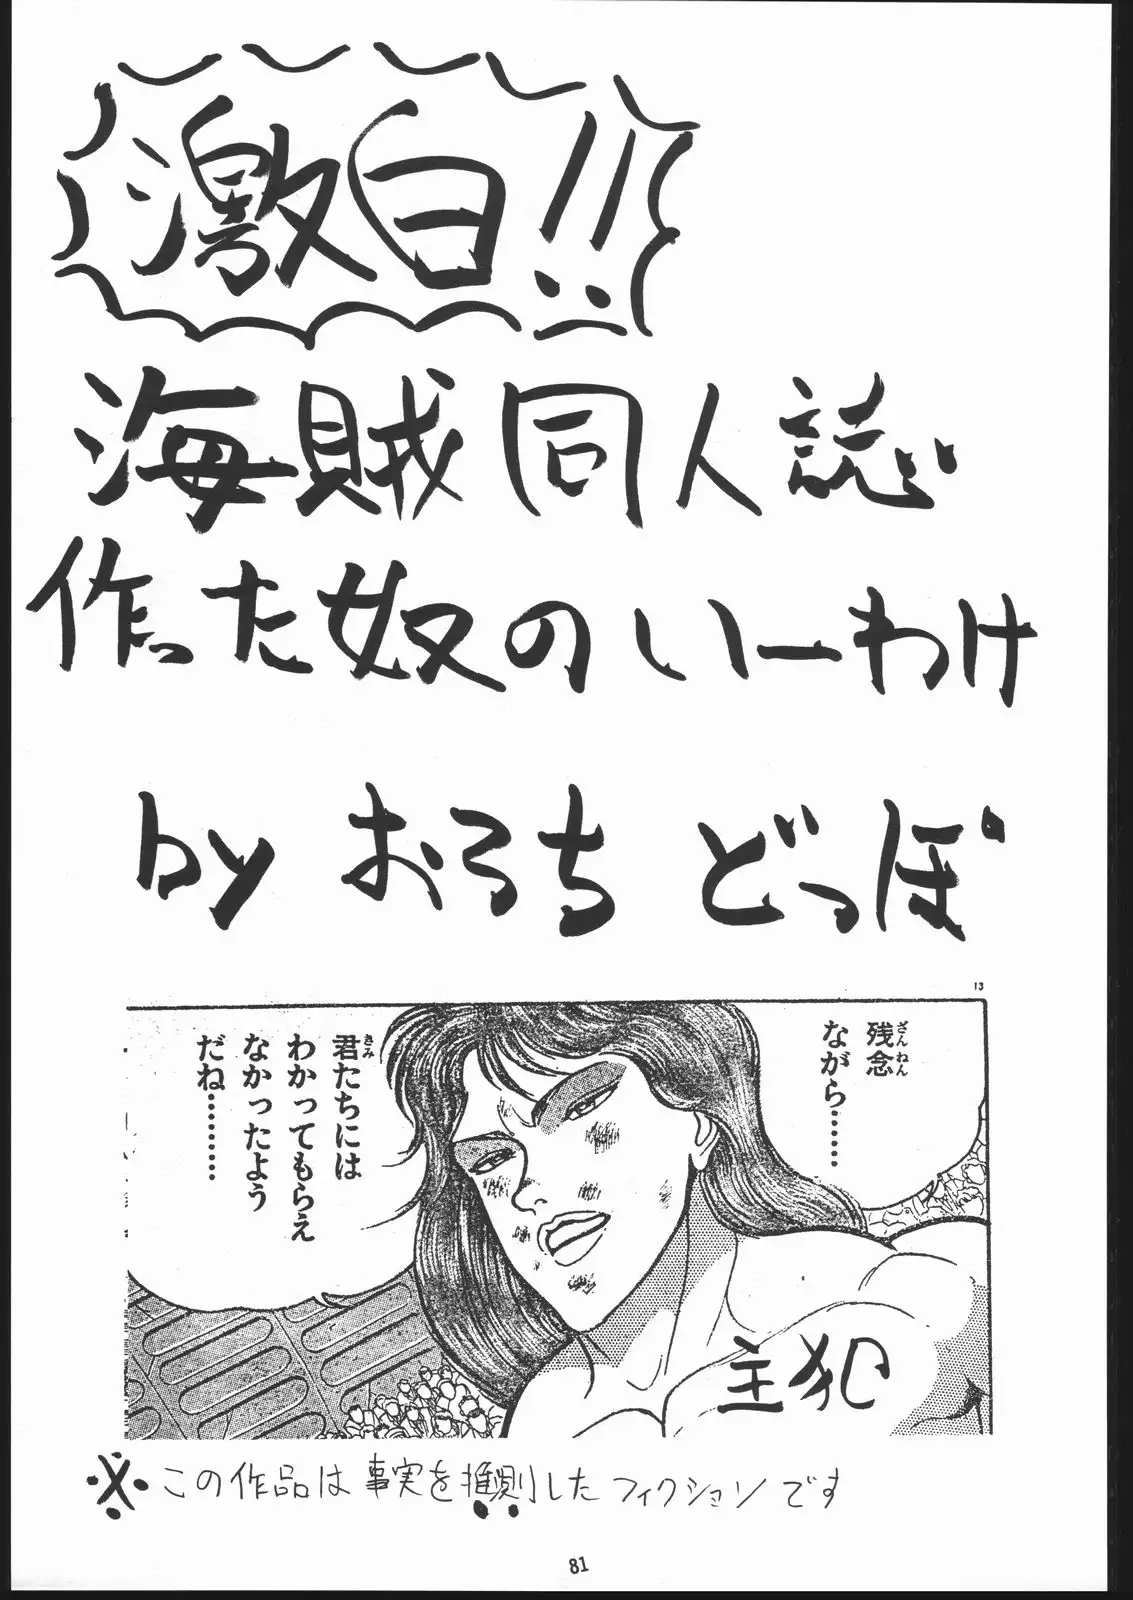 激白!!
海賊同人誌
作った奴のいーわけ
by おろち どっぽ
13
残念
ざんねん
ながら……
君たちには
きみ
わかってもらえ
なかったよう
だね………
主犯
※この作品は事実を推測したフィクションです
81